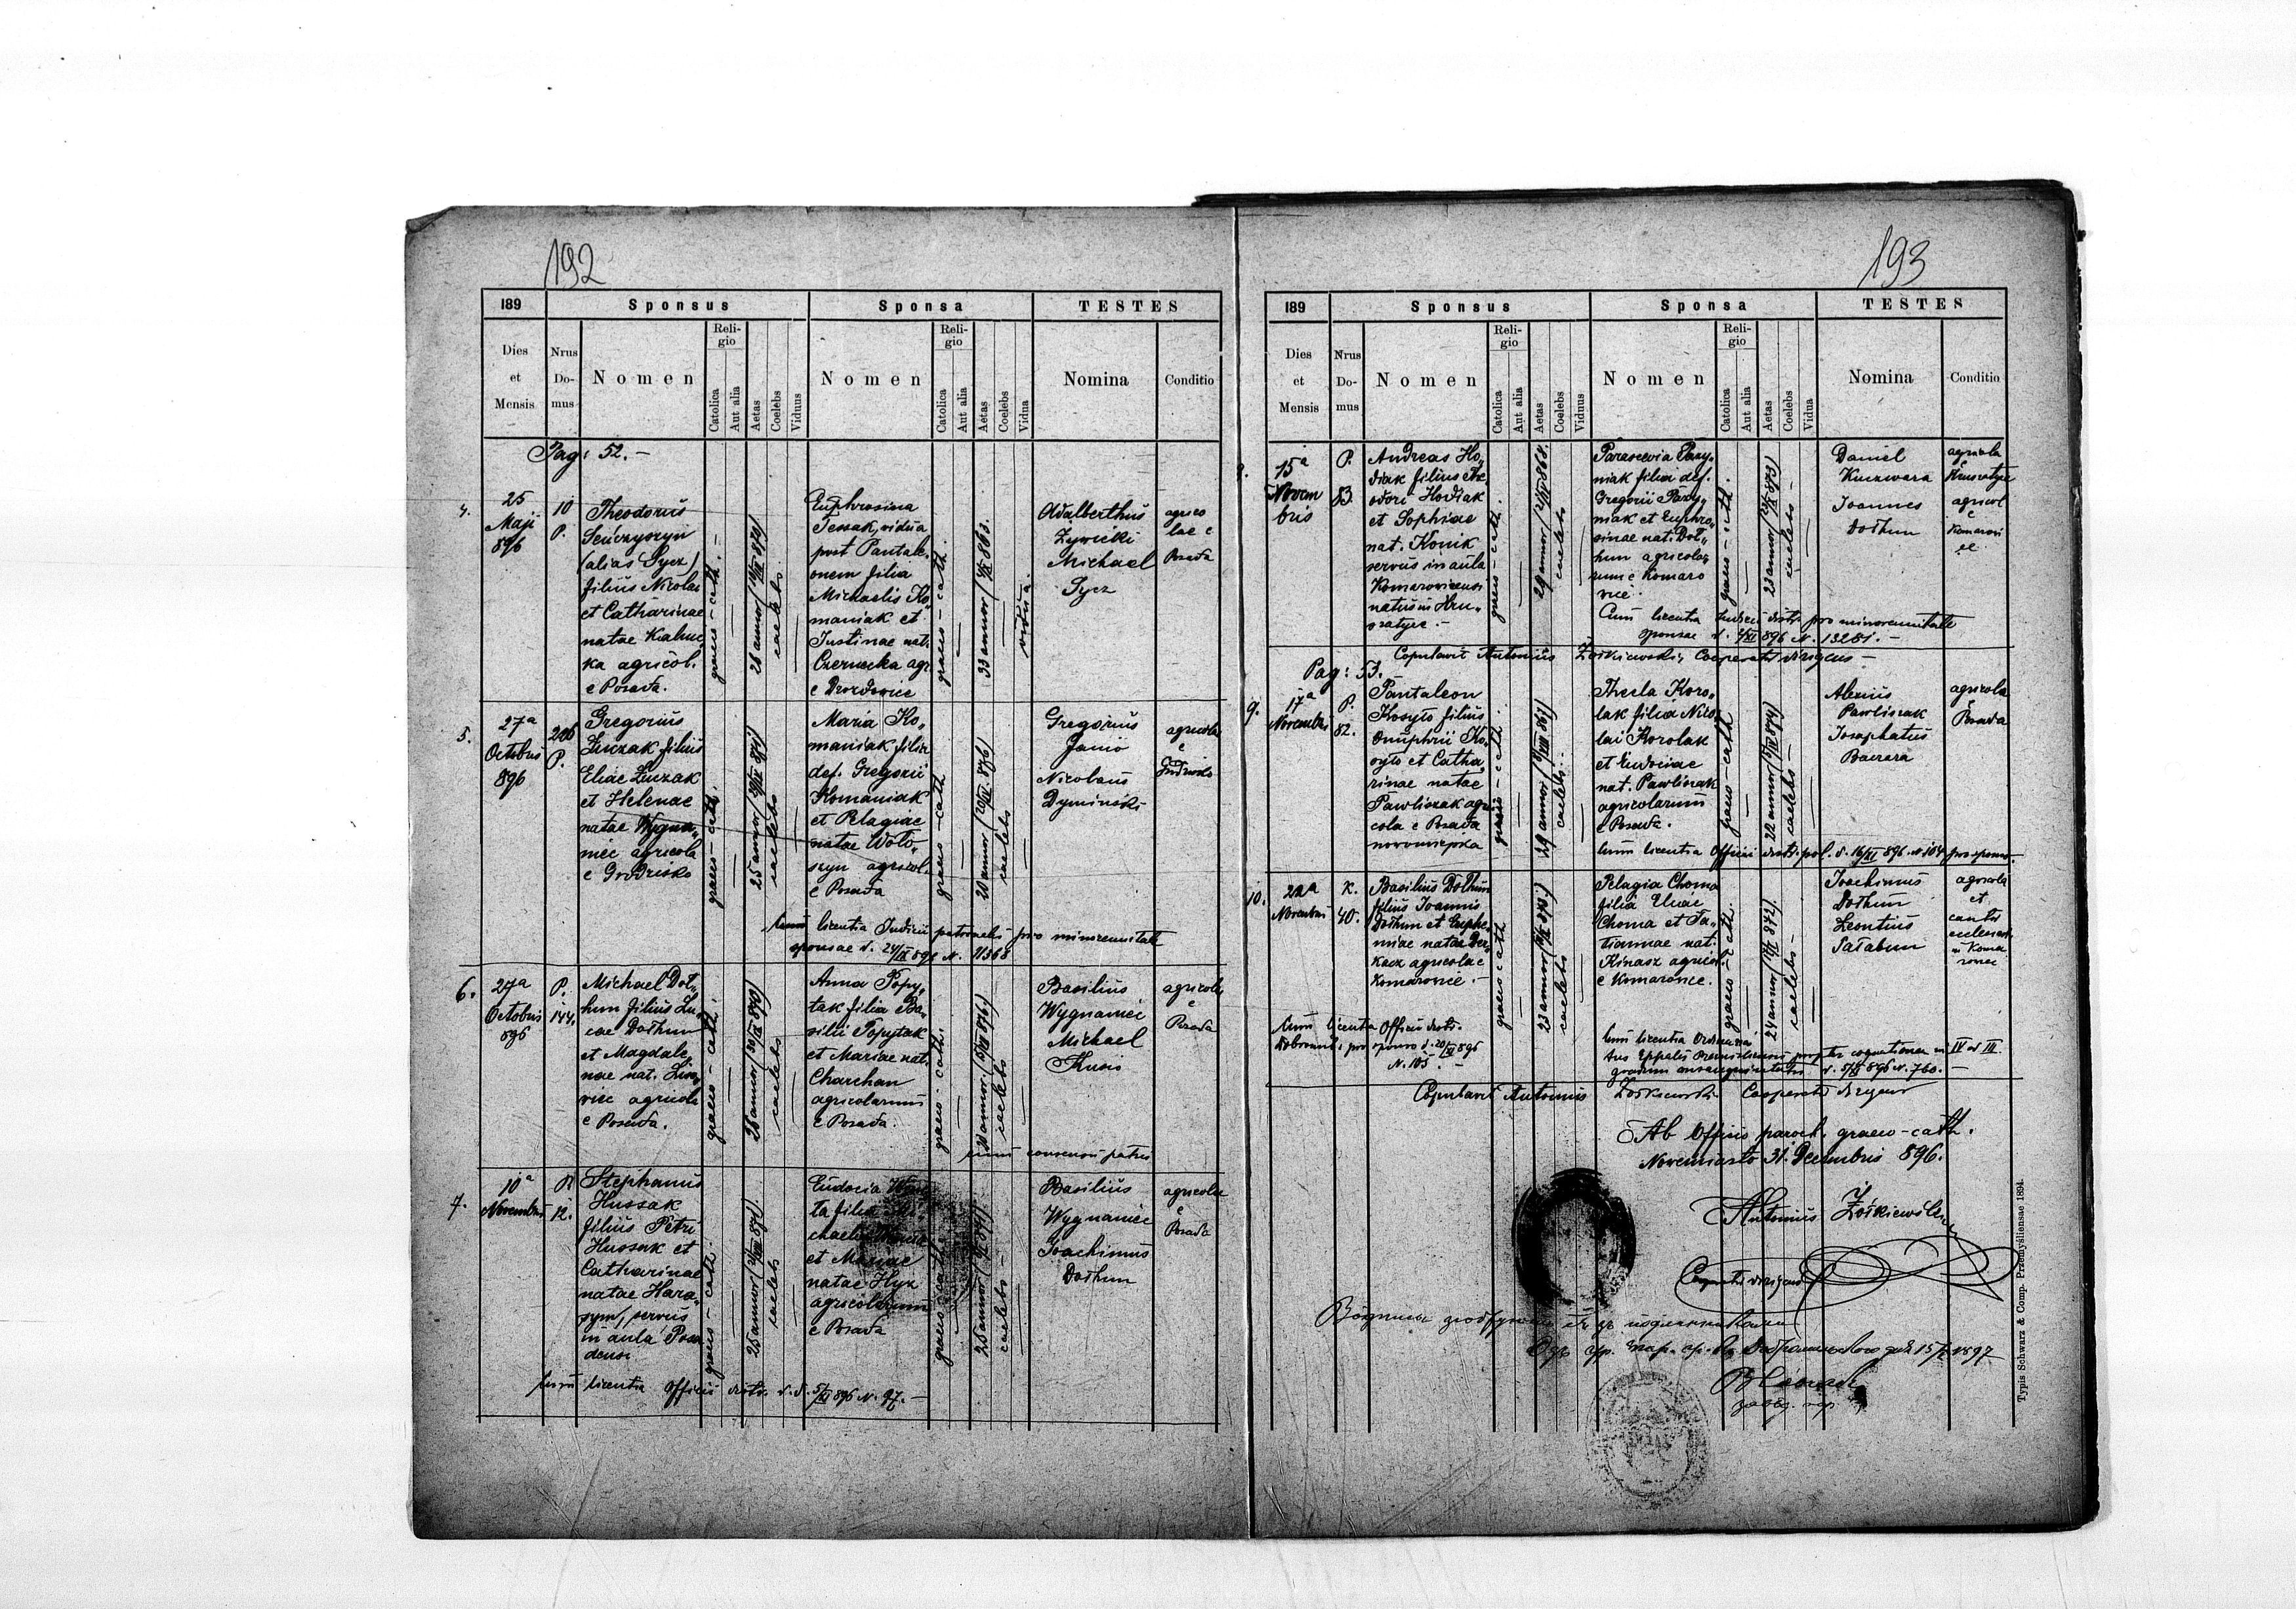 192
189
Sponsus
Sponsa
TESTES
Dies et Mensis
Nrus Domus
Nomen
Religio
Catolica
Aut alia
Aetas
Coelebs
Viduus
Nomen
Religio
Catolica
Aut alia
Aetas
Coelebs
Vidua
Nomina
Conditio
Pag: 52. –
4.
25
Maji
896
10
P.
Theodorus
Senczyszyn
(alias Sycz)
filius Nicolai
et Catharinae
natae Kalni„
ka agricol.
e Posada.
graeco – cath. –
28 annor
caelebs
Euphrosina
Tessak, vidua
post Pantale„
onem filia
Michaelis Ko„
maniak et
Justinae nat.
Czernecka agr.
e Drozdowice
graeco – cath.
33 annor
vidua
Adalberthus
Żywicki
Michael
Sycz
agrico
lae e
Posada
5.
27a
Octobris
896
206
P.
Gregorius
Łuczak filius
Eliae Łuczak
et Helenae
natae Wygna„
niec agricola
e Grodzisko
graeco – cath.
25 annor
caelebs
Maria Ko„
maniak filia
def. Gregorii
Komaniak
et Pelagiae
natae Woło„
szyn agricol.
e Posada
graeco – cath
20 annor
caelebs
Gregorius
Janio
Nicolaus
Dyminski
agricolae
e
Grodzisko
Cum licentia Judicii pro minorennitate
sponsae d. 24/IX 896 N. 11368
6.
27a
Octobris
896
P.
144.
Michael Doł„
hun filius Lu„
cae Dołhun
et Magdale„
nae nat.
agricola
e Posada.
graeco – cath.
26 annor
caelebs
Anna Popy„
tak filia Ba„
silii Popytak
et Mariae nat.
Charchan
agricolarum
e Posada.
graeco – cath.
20 annor
caelebs
Basilius
Wygnaniec
Michael
agricolae
e
Posada
cum consensu patris
7.
10a
Novembris
P.
12.
Stephanus
Hussak
filius Petri
Hussak et
Catharinae
natae Hara„
sym, servus
in aula Posa
densi
graeco – cath.
25 annor
caelebs
Eudocia
ta filia
chaelis
et Mariae
natae Hyk
agricolarum
e Posada
graeco – cath.
25 annor
caelebs –
Basilius
Wygnaniec
Joachimus
Dołhun
agricolae
e
Posada
Cum licentia Officii distr. d. 5/XI 896 N. 97. –
193
189
Sponsus
Sponsa
TESTES
Dies et Mensis
Nrus Domus
Nomen
Religio
Catolica
Aut alia
Aetas
Coelebs
Viduus
Nomen
Religio
Catolica
Aut alia
Aetas
Coelebs
Vidua
Nomina
Conditio
15a
Novem
bris
P.
83.
Andreas Ho„
diak filius The
odori Hodiak
et Sophiae
nat. Konik
servus in aula
Komarovicensi
natus in Hru„
szatyce. –
graeco – cath.
caelebs
Parascevia
niak filia def.
Gregorii
niak et Euphro„
sinae nat. Doł„
hun agricola„
rum e Komaro
wice.
graeco – cath.
23 annor
caelebs –
Daniel
Kuczwara
Joannes
Dołhun
agricola
e Hruszatyce
agricol
e
Komarowi
ce
Cum licentia Judicii distr. pro minorennitate
sponsae d. 896 N. 13281. –
Copulavit Antonius Żółkiewski, Cooperator dirigens –
Pag: 53.
9.
17a
Novembris
P.
82.
Pantaleon
Kosyło filius
Onuphrii Ko„
syło et Catha„
rinae natae
Pawliszak agri
cola e Posada
novomiejska
graeco – cath.
29 annor
caelebs.
Thecla Koro„
lak filia Nico
lai Korolak
et Eudociae
nat. Pawliszak
agricolarum
e Posada.
graeco – cath
22 annor
caelebs –
Alexius
Pawliszak
Josaphatus
Baczara
agricolae
e
Posada
Cum licentia Officii distr. pol. d. 16/XI 896 N. 104 pro sponso.
10.
22a
Novembris
K.
40.
Basilius Dołhun
filius Joannis
Dołhun et Euphe„
miae natae Der„
kacz agricola e
Komarowice. –
graeco cath
23 annor
caelebs
Pelagia Choma
filia Eliae
Choma et Ta„
tiannae nat.
Kinasz agricol.
e Komarowice.
graeco – cath.
24 annor
caelebs –
Joachimus
Dołhun
Leontius
Sałabun
agricola
et
cantor
ecclesiast.
in Koma
rowice
Cum licentia Officii distr.
Dobromil: pro sponso d. 20/XI 896
N. 105. –
Cum licentia Ordinaria
tus Eppalis Premisliensis propter cognationem in IV ad III
gradum consanguinitatis d. 896 N. 760. –
Copulavit Antonius Żółkiewski Cooperator dirigens
Ab Officio paroch. graeco-cath.
Novemiasto 31. Decembris 896.
Antonius Żółkiewski
Cooperator dirigens
15/1 1897
Typis Schwarz & Comp. Przemysliensae 1894.